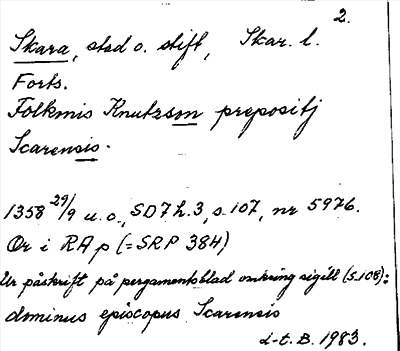 2.
Skara, stad o. stift, Skar. l.
Forts.
Folkmis Knutzson prepositj
Scarensis.
1358 29/9 u.o., SD 7 h. 3, s. 107, nr 5976.
Or i RA p (= SRP 384)
Ur påskrift på pergamentsblad omkring sigill (s. 108):
dominus episcopus Scarensis
d-t. B. 1983.